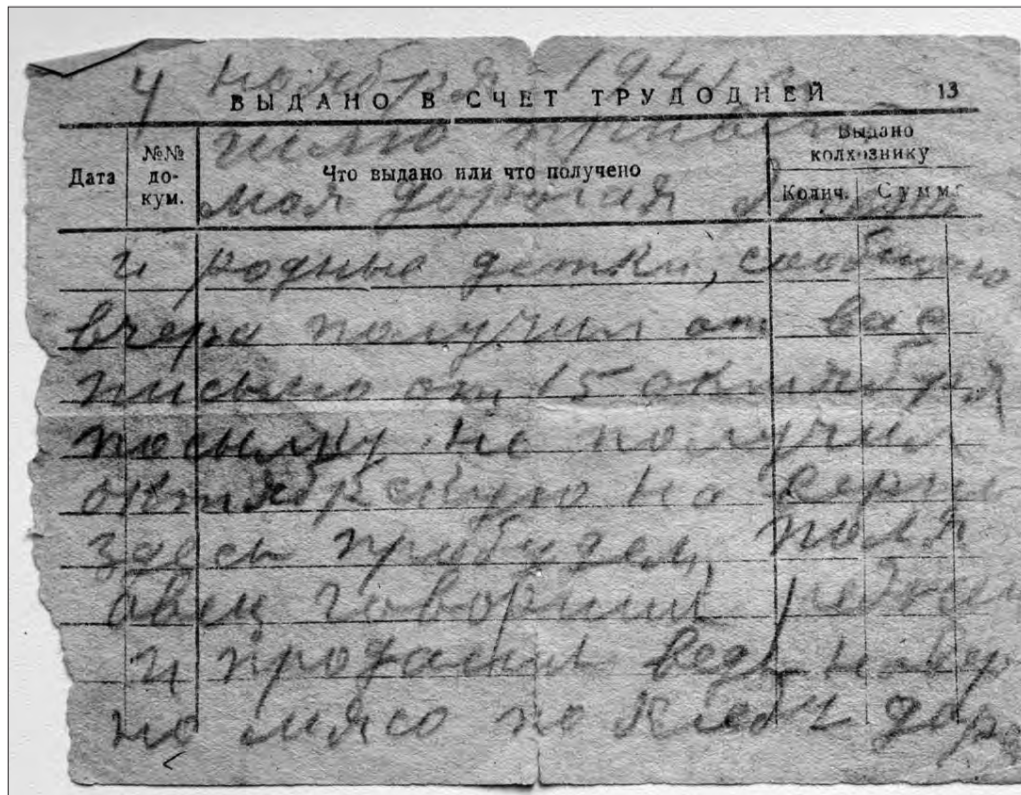 4 ноября 1941 г
ВЫДАНО В СЧЕТ ТРУДОДНЕЙ 13
шлю привет
Дата №№ до- кум. Что выдано или что получено Выдано колхознику Колич. Сумма
моя дорогая
и родные детки, сообщаю
вчера получил от вас
письмо от 15 октября
посылку не получил
октябрскую но
здесь пробудем, пола
авец говорит
и продасть ведь навер
но мясо по хлебу доро